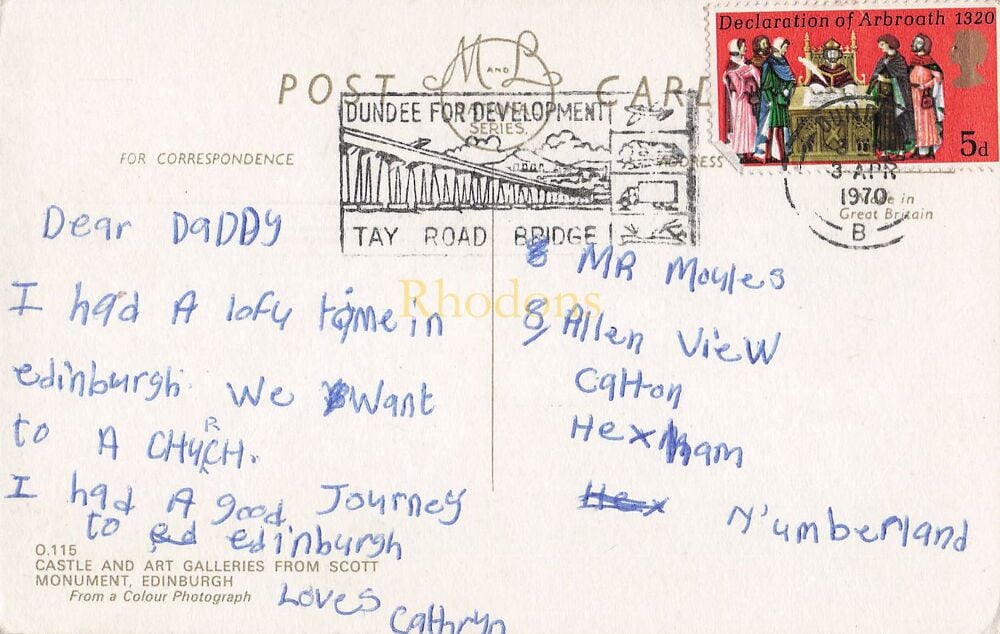 Declaration of Arbroath 1320
5d
POST CARD
M AND L
NATIONAL
SERIES
DUNDEE FOR DEVELOPMENT
TAY ROAD BRIDGE
3 APR
1970
B
FOR CORRESPONDENCE
ADDRESS
Made in
Great Britain
Dear DaDDy
I had A lofy time in
edinburgh. We Want
to A CHURCH.
I had A good Journey
to ed edinburgh
Loves Cathryn
MR Moules
8, Allen View
Catton
Hexham
Hex
N'umberland
Rhodons
O.115
CASTLE AND ART GALLERIES FROM SCOTT
MONUMENT, EDINBURGH
From a Colour Photograph